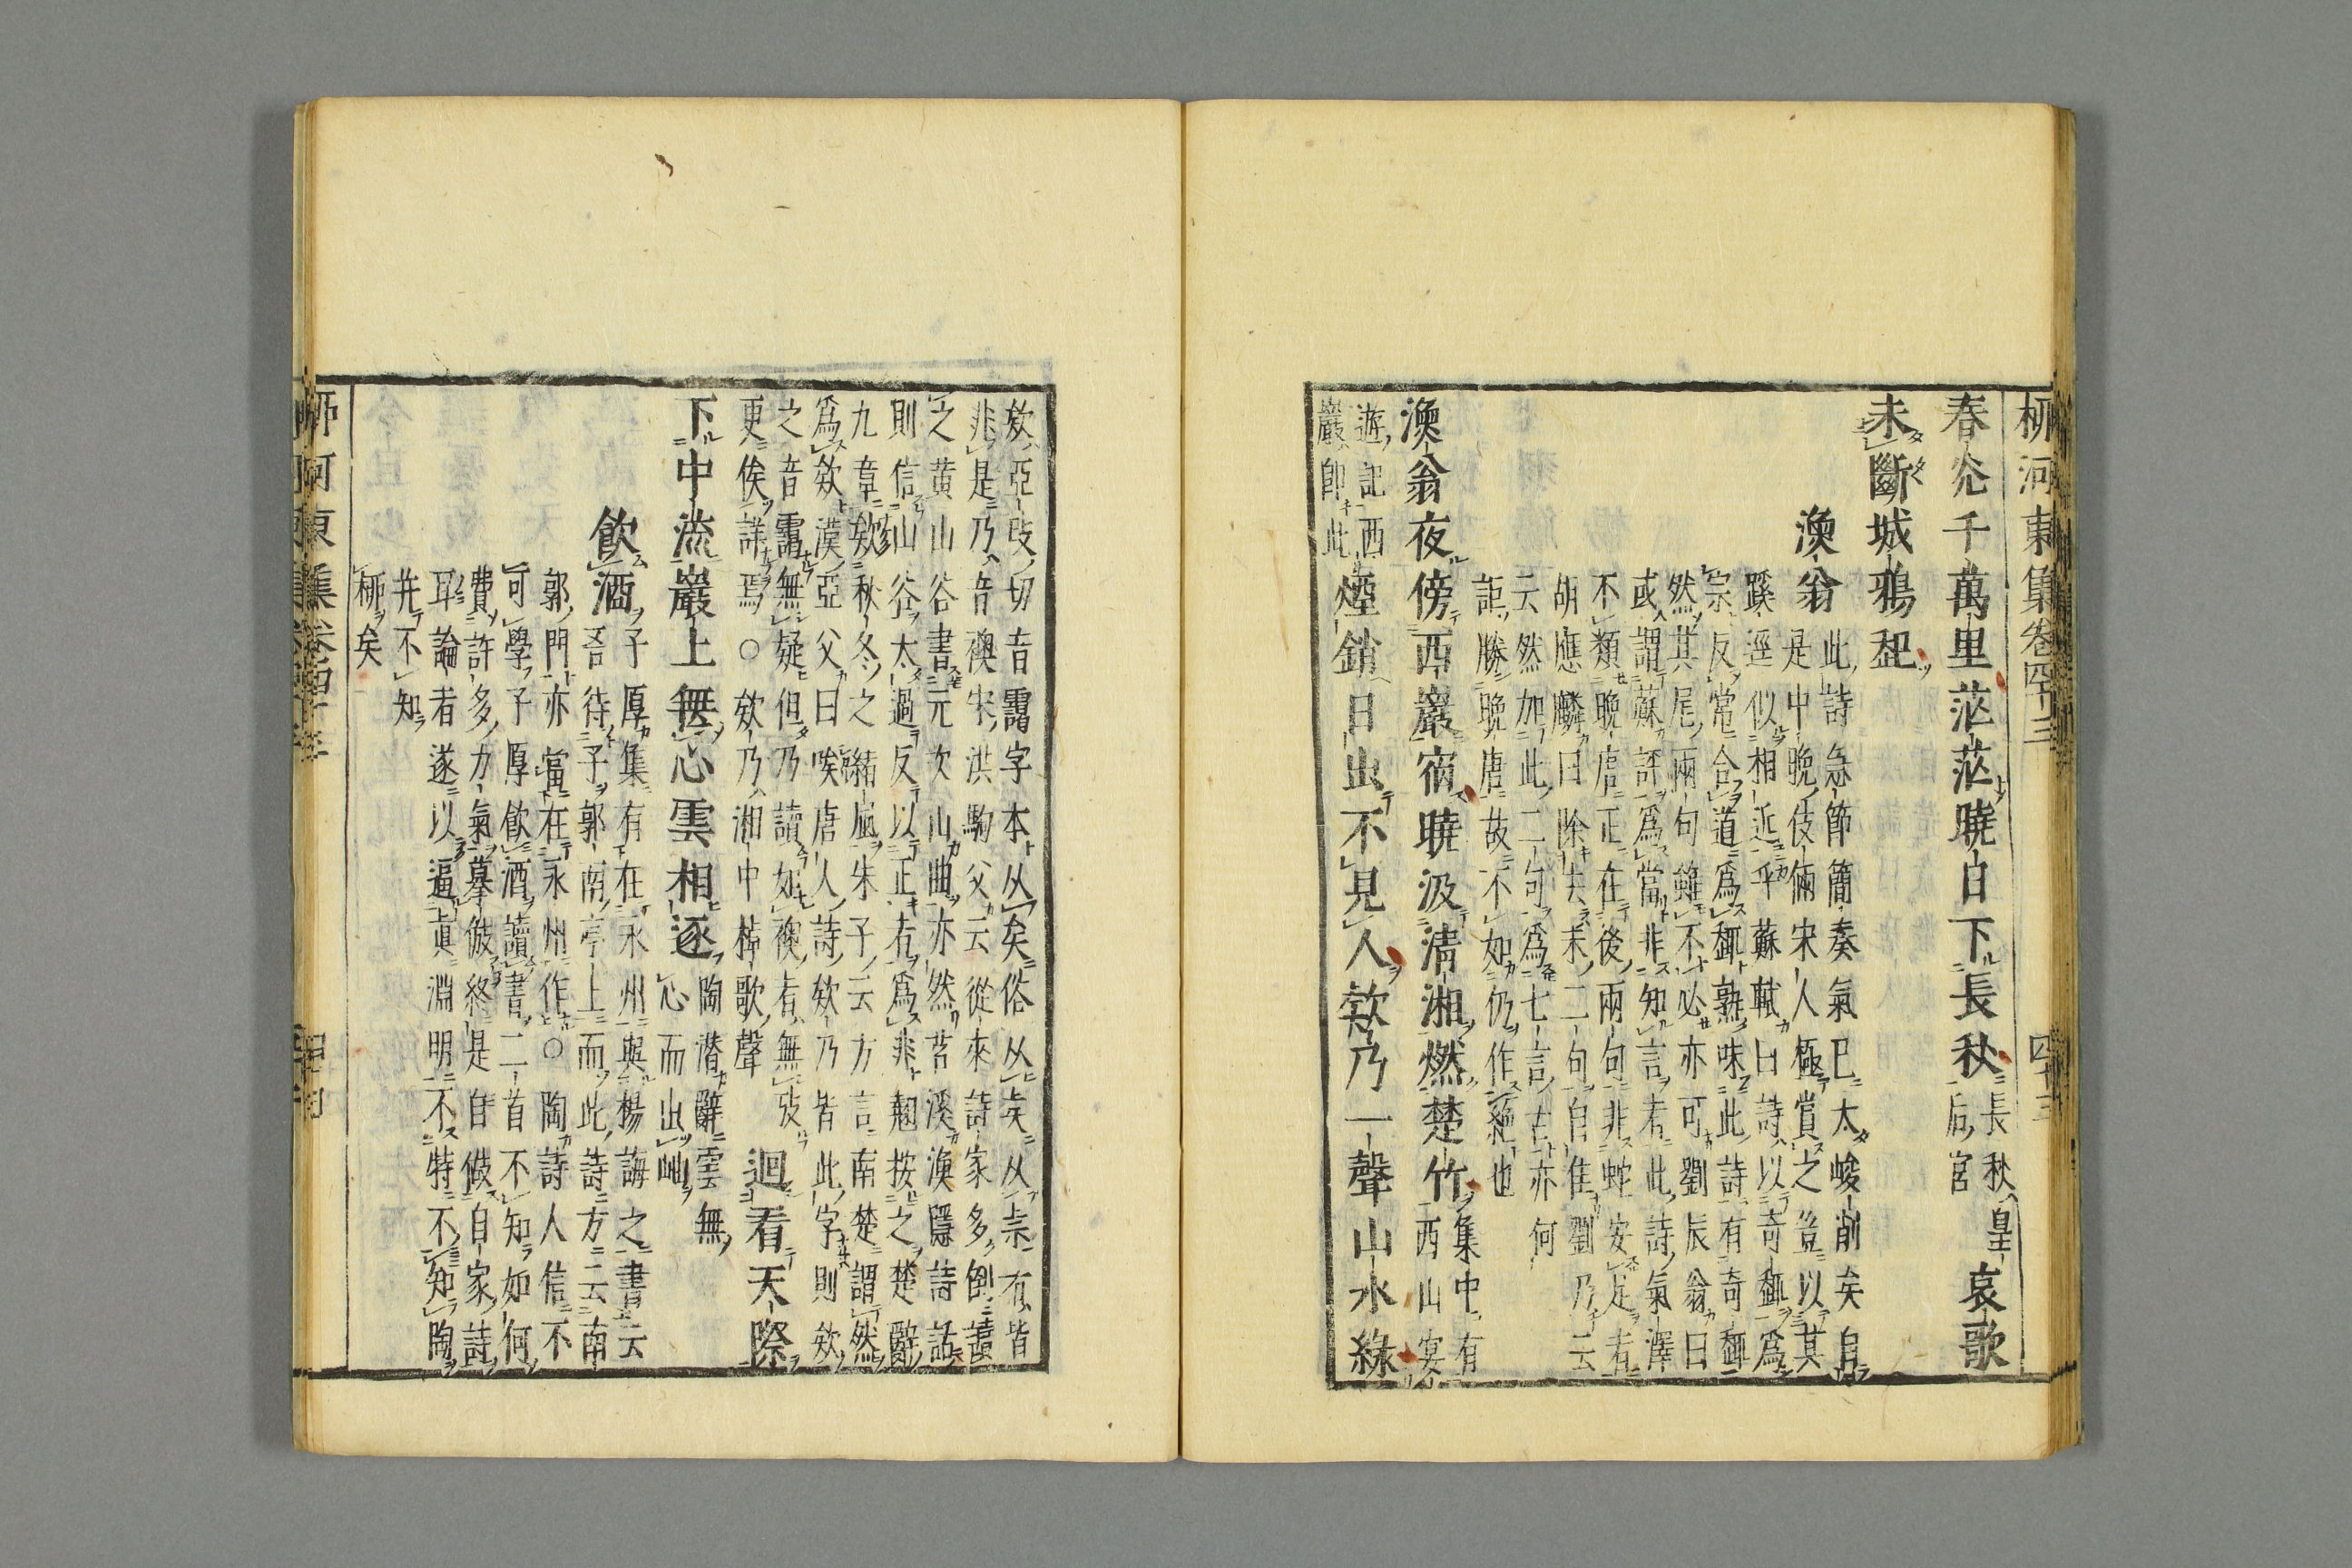 柳河東集卷四十三
四十三
春尽千萬里茫茫曉日下長秋
長秋皇
后宮
哀歌
未斷城鴉起
漁翁
此詩急節簡奏氣已太峻削矣自
是中晚伎倆宋人極賞之豈以其
蹊逕似相近乎蘇軾曰詩以奇趣爲
宗反常合道爲趣熟味此詩有奇趣
然其尾兩句雖不必亦可劉辰翁曰
或謂蘇評爲當非知言者此詩氣澤
不類晚唐正在後兩句非蛇安足者
胡應麟曰除去末二句自佳劉乃云
云然加此二句爲七言古亦何
詎勝晚唐故不如仍作絶也
漁翁夜傍西巖宿曉汲清湘燃楚竹
集中有
西山宴
遊記西
巖即此
煙銷日出不見人欸乃一聲山水綠
欸亞改切音靄字本从矣俗从㠯从柰有皆
非是乃音襖宋洪駒父云從來詩家多倒讀
之黄山谷書元次山曲亦然苕溪漁隱詩話
則信山谷太過反以正者爲非趐按之楚辭
九章欸秋冬之緒風朱子云方言南楚謂然
爲欸漢亞父曰唉唐人詩欸乃皆此字則欸
之音靄無疑但乃讀如襖者無攷
更俟詳焉○欸乃湘中棹歌聲
迴看天際
下中流巖上無心雲相逐
陶潜辭雲無
心而出岫
飲酒
子厚集有在永州與楊誨之書云
吾待子郭南亭上而此詩方云南
郭門亦當在永州作○陶詩人信不
可學子厚飲酒讀書二首不知如何
費許多力氣摹倣終是自倣自家詩
耳論者遂以逼眞淵明不特不知陶
并不知
柳矣
柳河東集卷四十三